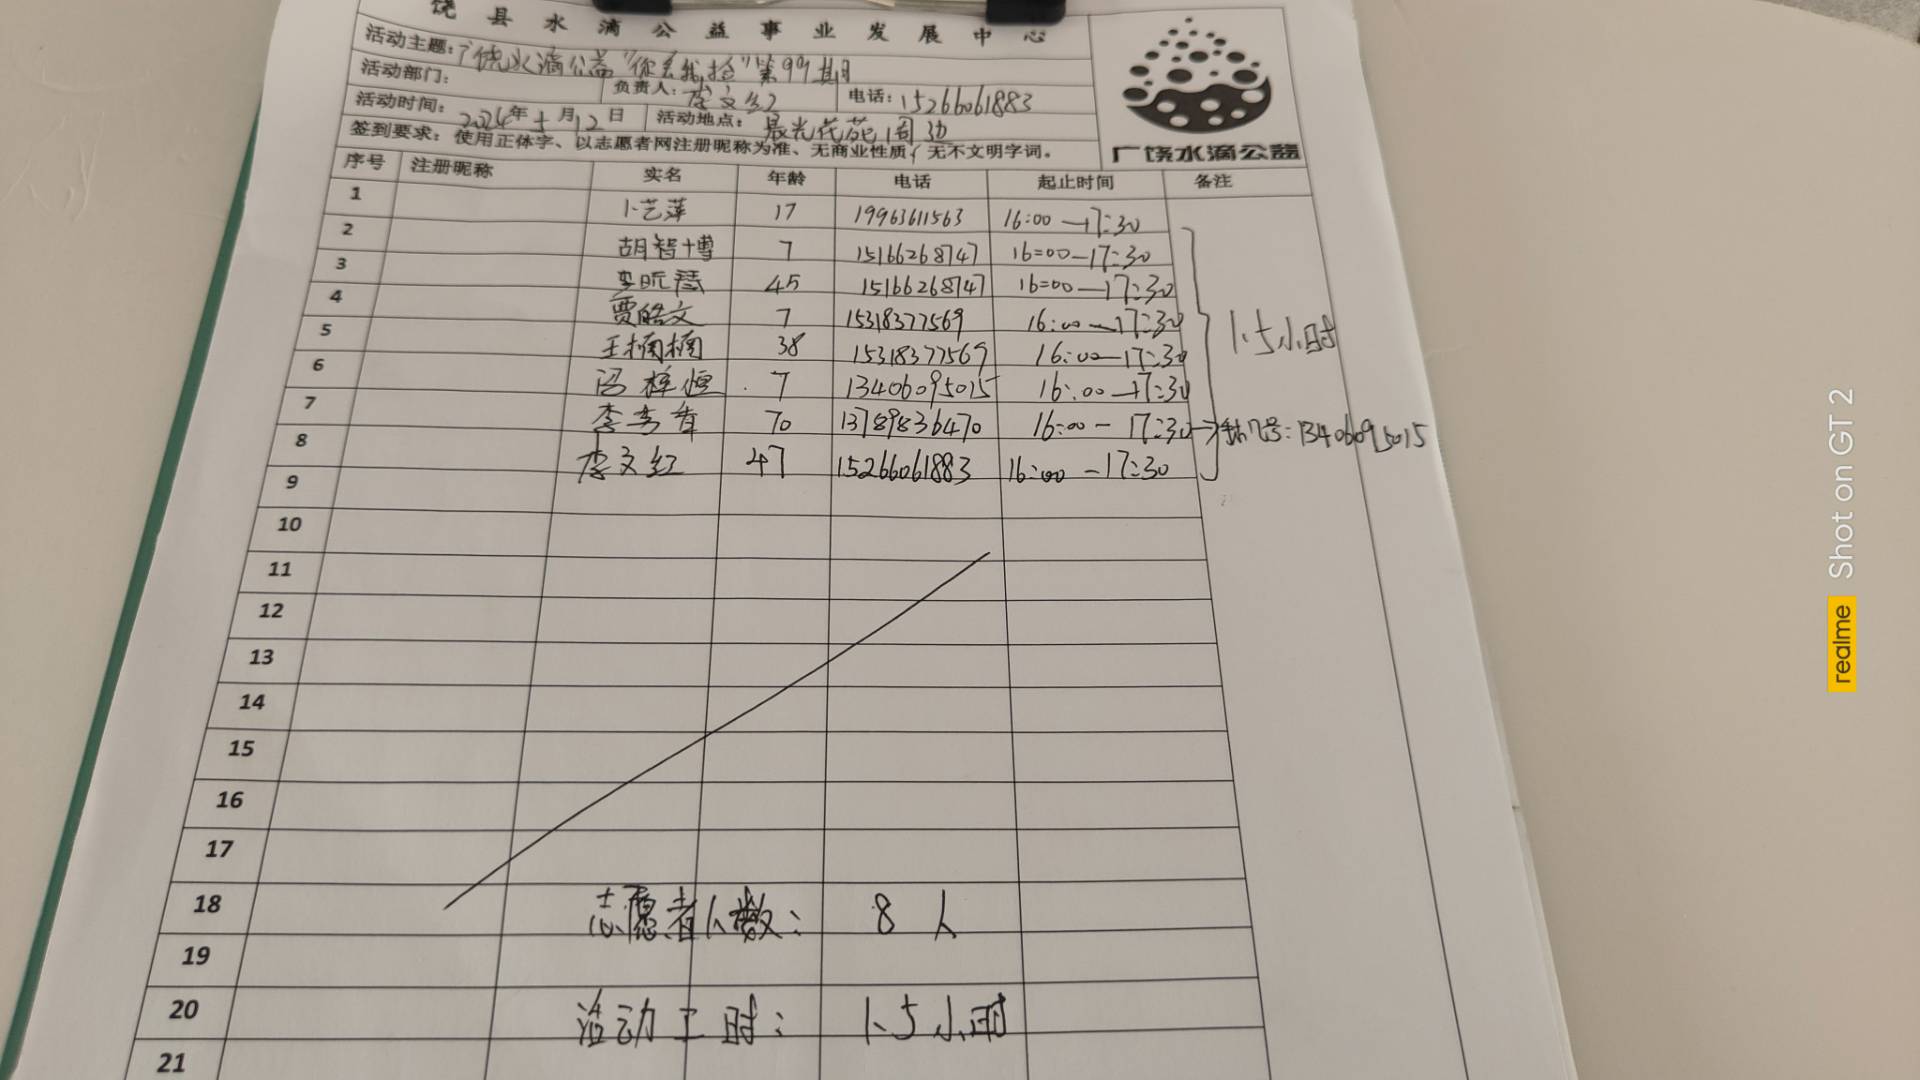 饶县水滴公益事业发展中心
活动主题：广饶水滴公益"你丢我捡"第99期
活动部门： 负责人：李文红 电话：15266061883
活动时间：2024年5月12日 活动地点：晨光花苑周边
签到要求：使用正体字、以志愿者网注册昵称为准、无商业性质、无不文明字词。
广饶水滴公益
序号 注册昵称 实名 年龄 电话 起止时间 备注
1 卜艺萍 17 19963611563 16:00—17:30
2 胡智博 7 15166268747 16:00—17:30
3 45 15166268747 16:00—17:30
4 贾皓文 7 15318377569 16:00—17:30
5 王楠楠 38 15318377569 16:00—17:30
1.5小时
6 冯梓恒 7 13406095015 16:00—17:30
7 李秀香 70 13789836470 16:00—17:30 →手机号：13406095015
8 李文红 47 15266061883 16:00—17:30
9
10
11
12
13
14
15
16
17
18 志愿者人数：8人
19
20 活动工时：1.5小时
21
realme Shot on GT 2